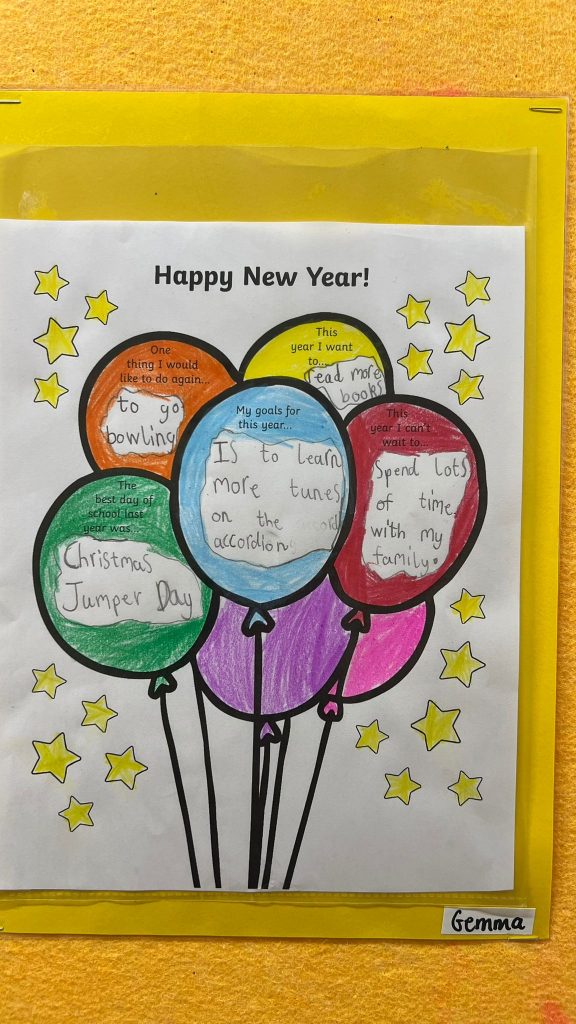 Happy New Year!
One
thing I would
like to do again...
to go
bowling
This
year I want
to...
read more
books
My goals for
this year...
Is to learn
more tunes
on the accord
accordion.
This
year I can't
wait to...
Spend lots
of time
with my
family.
The
best day of
school last
year was...
Christmas
Jumper Day
Gemma